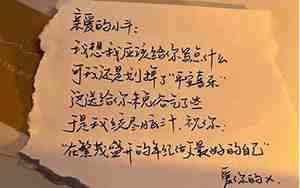 亲爱的小平:
我想我应该给你写点什么
可我还是划掉了“平安喜乐”
说送给你未免俗气了些
于是我绞尽脑汁,祝你:
“在繁花盛开的年纪做最好的自己”
爱你的